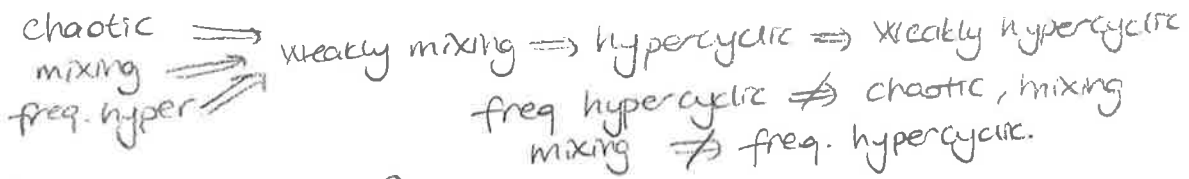 chaotic ⟹
mixing ⟹ weakly mixing ⟹ hypercyclic ⟹ weakly hypercyclic
freq. hyper ⟹
freq hypercyclic ⇏ chaotic, mixing
mixing ⇏ freq. hypercyclic.